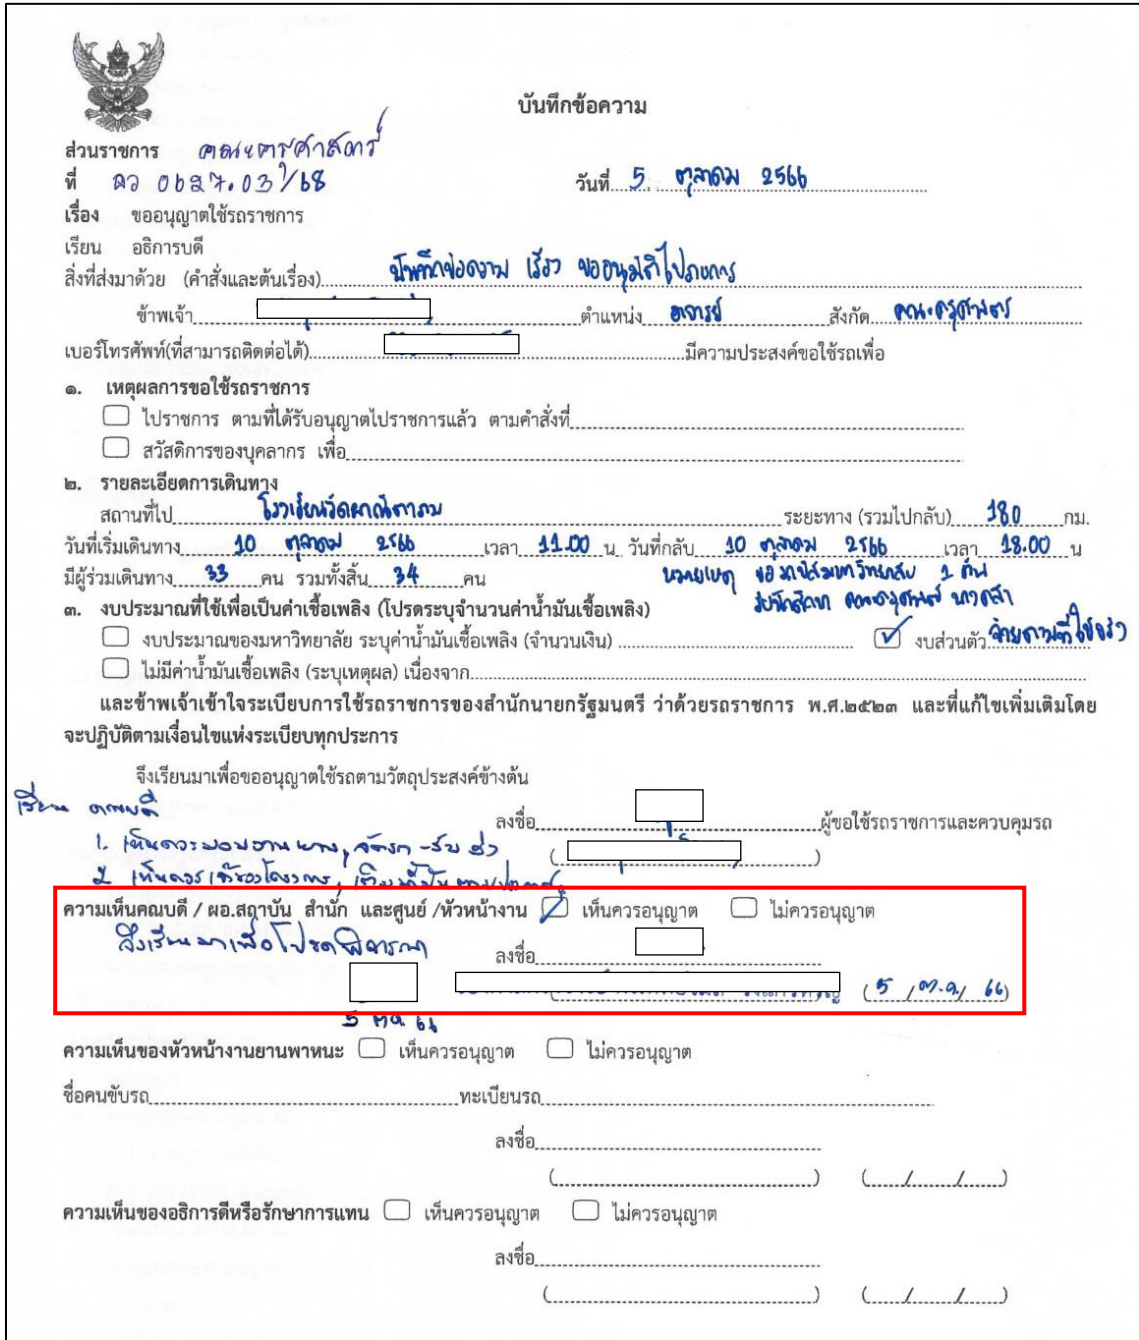 บันทึกข้อความ
ส่วนราชการ คณะครุศาสตร์
ที่ อว 0627.03/168
วันที่ 5 ตุลาคม 2566
เรื่อง ขออนุญาตใช้รถราชการ
เรียน อธิการบดี
สิ่งที่ส่งมาด้วย (คำสั่งและต้นเรื่อง) บันทึกข้อความ เรื่อง ขออนุมัติไปราชการ
ข้าพเจ้า ตำแหน่ง อาจารย์ สังกัด คณะครุศาสตร์
เบอร์โทรศัพท์(ที่สามารถติดต่อได้) มีความประสงค์ขอใช้รถเพื่อ
๑. เหตุผลการขอใช้รถราชการ
ไปราชการ ตามที่ได้รับอนุญาตไปราชการแล้ว ตามคำสั่งที่
สวัสดิการของบุคลากร เพื่อ
๒. รายละเอียดการเดินทาง
สถานที่ไป ระยะทาง (รวมไปกลับ) 180 กม.
วันที่เริ่มเดินทาง 10 ตุลาคม 2566 เวลา 11.00 น. วันที่กลับ 10 ตุลาคม 2566 เวลา 18.00 น
มีผู้ร่วมเดินทาง 33 คน รวมทั้งสิ้น 34 คน หมายเหตุ 1 คัน
๓. งบประมาณที่ใช้เพื่อเป็นค่าเชื้อเพลิง (โปรดระบุจำนวนค่าน้ำมันเชื้อเพลิง)
งบประมาณของมหาวิทยาลัย ระบุค่าน้ำมันเชื้อเพลิง (จำนวนเงิน) งบส่วนตัว จ่ายตามที่ใช้จริง
ไม่มีค่าน้ำมันเชื้อเพลิง (ระบุเหตุผล) เนื่องจาก
และข้าพเจ้าเข้าใจระเบียบการใช้รถราชการของสำนักนายกรัฐมนตรี ว่าด้วยรถราชการ พ.ศ.๒๕๒๓ และที่แก้ไขเพิ่มเติมโดย
จะปฏิบัติตามเงื่อนไขแห่งระเบียบทุกประการ
จึงเรียนมาเพื่อขออนุญาตใช้รถตามวัตถุประสงค์ข้างต้น
เรียน คณบดี
ลงชื่อ ผู้ขอใช้รถราชการและควบคุมรถ
1. เห็นควรมอบงาน
2. เห็นควร
ความเห็นคณบดี / ผอ.สถาบัน สำนัก และศูนย์ /หัวหน้างาน เห็นควรอนุญาต ไม่ควรอนุญาต
จึงเรียนมาเพื่อโปรดพิจารณา
ลงชื่อ
(5 / ต.ค / 66)
5 ต.ค. 66
ความเห็นของหัวหน้างานยานพาหนะ เห็นควรอนุญาต ไม่ควรอนุญาต
ชื่อคนขับรถ ทะเบียนรถ
ลงชื่อ
( ) ( / / )
ความเห็นของอธิการดีหรือรักษาการแทน เห็นควรอนุญาต ไม่ควรอนุญาต
ลงชื่อ
( ) ( / / )